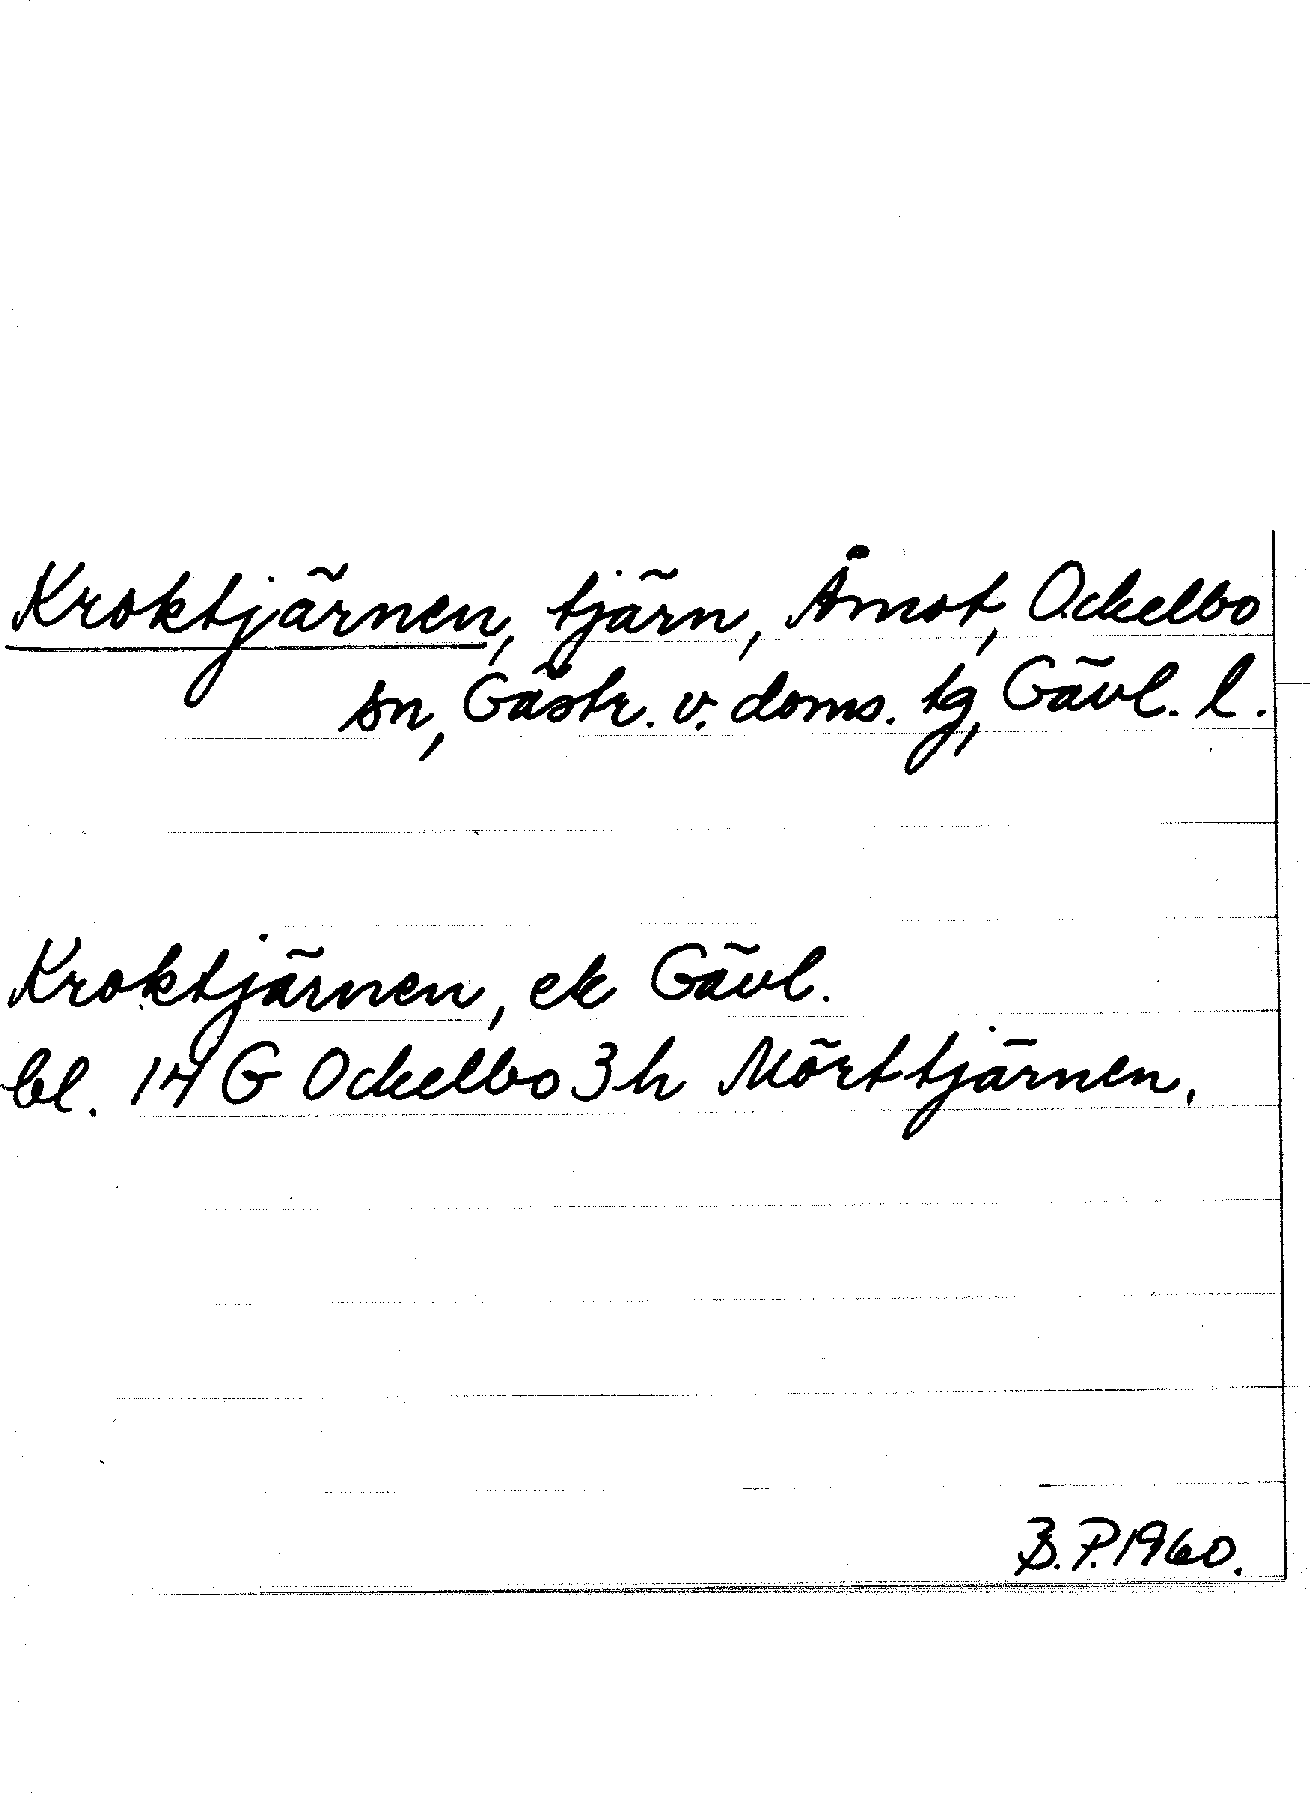 Kroktjärnen, tjärn, Åmot, Ockelbo
sn, Gästr. v. doms. tg, Gävl. l.
Kroktjärnen, ek Gävl.
bl. 14 G Ockelbo 3h Mörttjärnen.
B.P.1960.